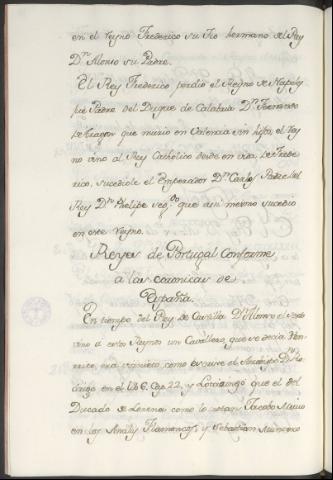 en el Reyno Frederico su tio hermano del Rey
Dn Alonso su Padre.
El Rey Frederico perdio el Reyno de Napoles
fue Padre del Duque de Calabria Dn Fernando
de Aragon que murio en Valencia sin hijos, el Rey
no vino al Rey Catholico desde en vida de Frede
rico, sucediole el Emperador Dn Carlos Padre del
Rey Dn Phelipe segdo que asi mesmo sucedio
en este Reyno.
Reyes de Portugal Conforme
a las coronicas de
España.
En tiempo del Rey de Castilla Dn Alonso el sexto
vino a estos Reynos un Cavallero, que se decia Hen
rrico, era
como escrive el Arzobispo Dn Ro
drigo en el lib 6. Cap. 22, y
que el del
Ducado de Lorena como lo notan Jacobo
en los Anales Flamencos, y Sebastian Munstero